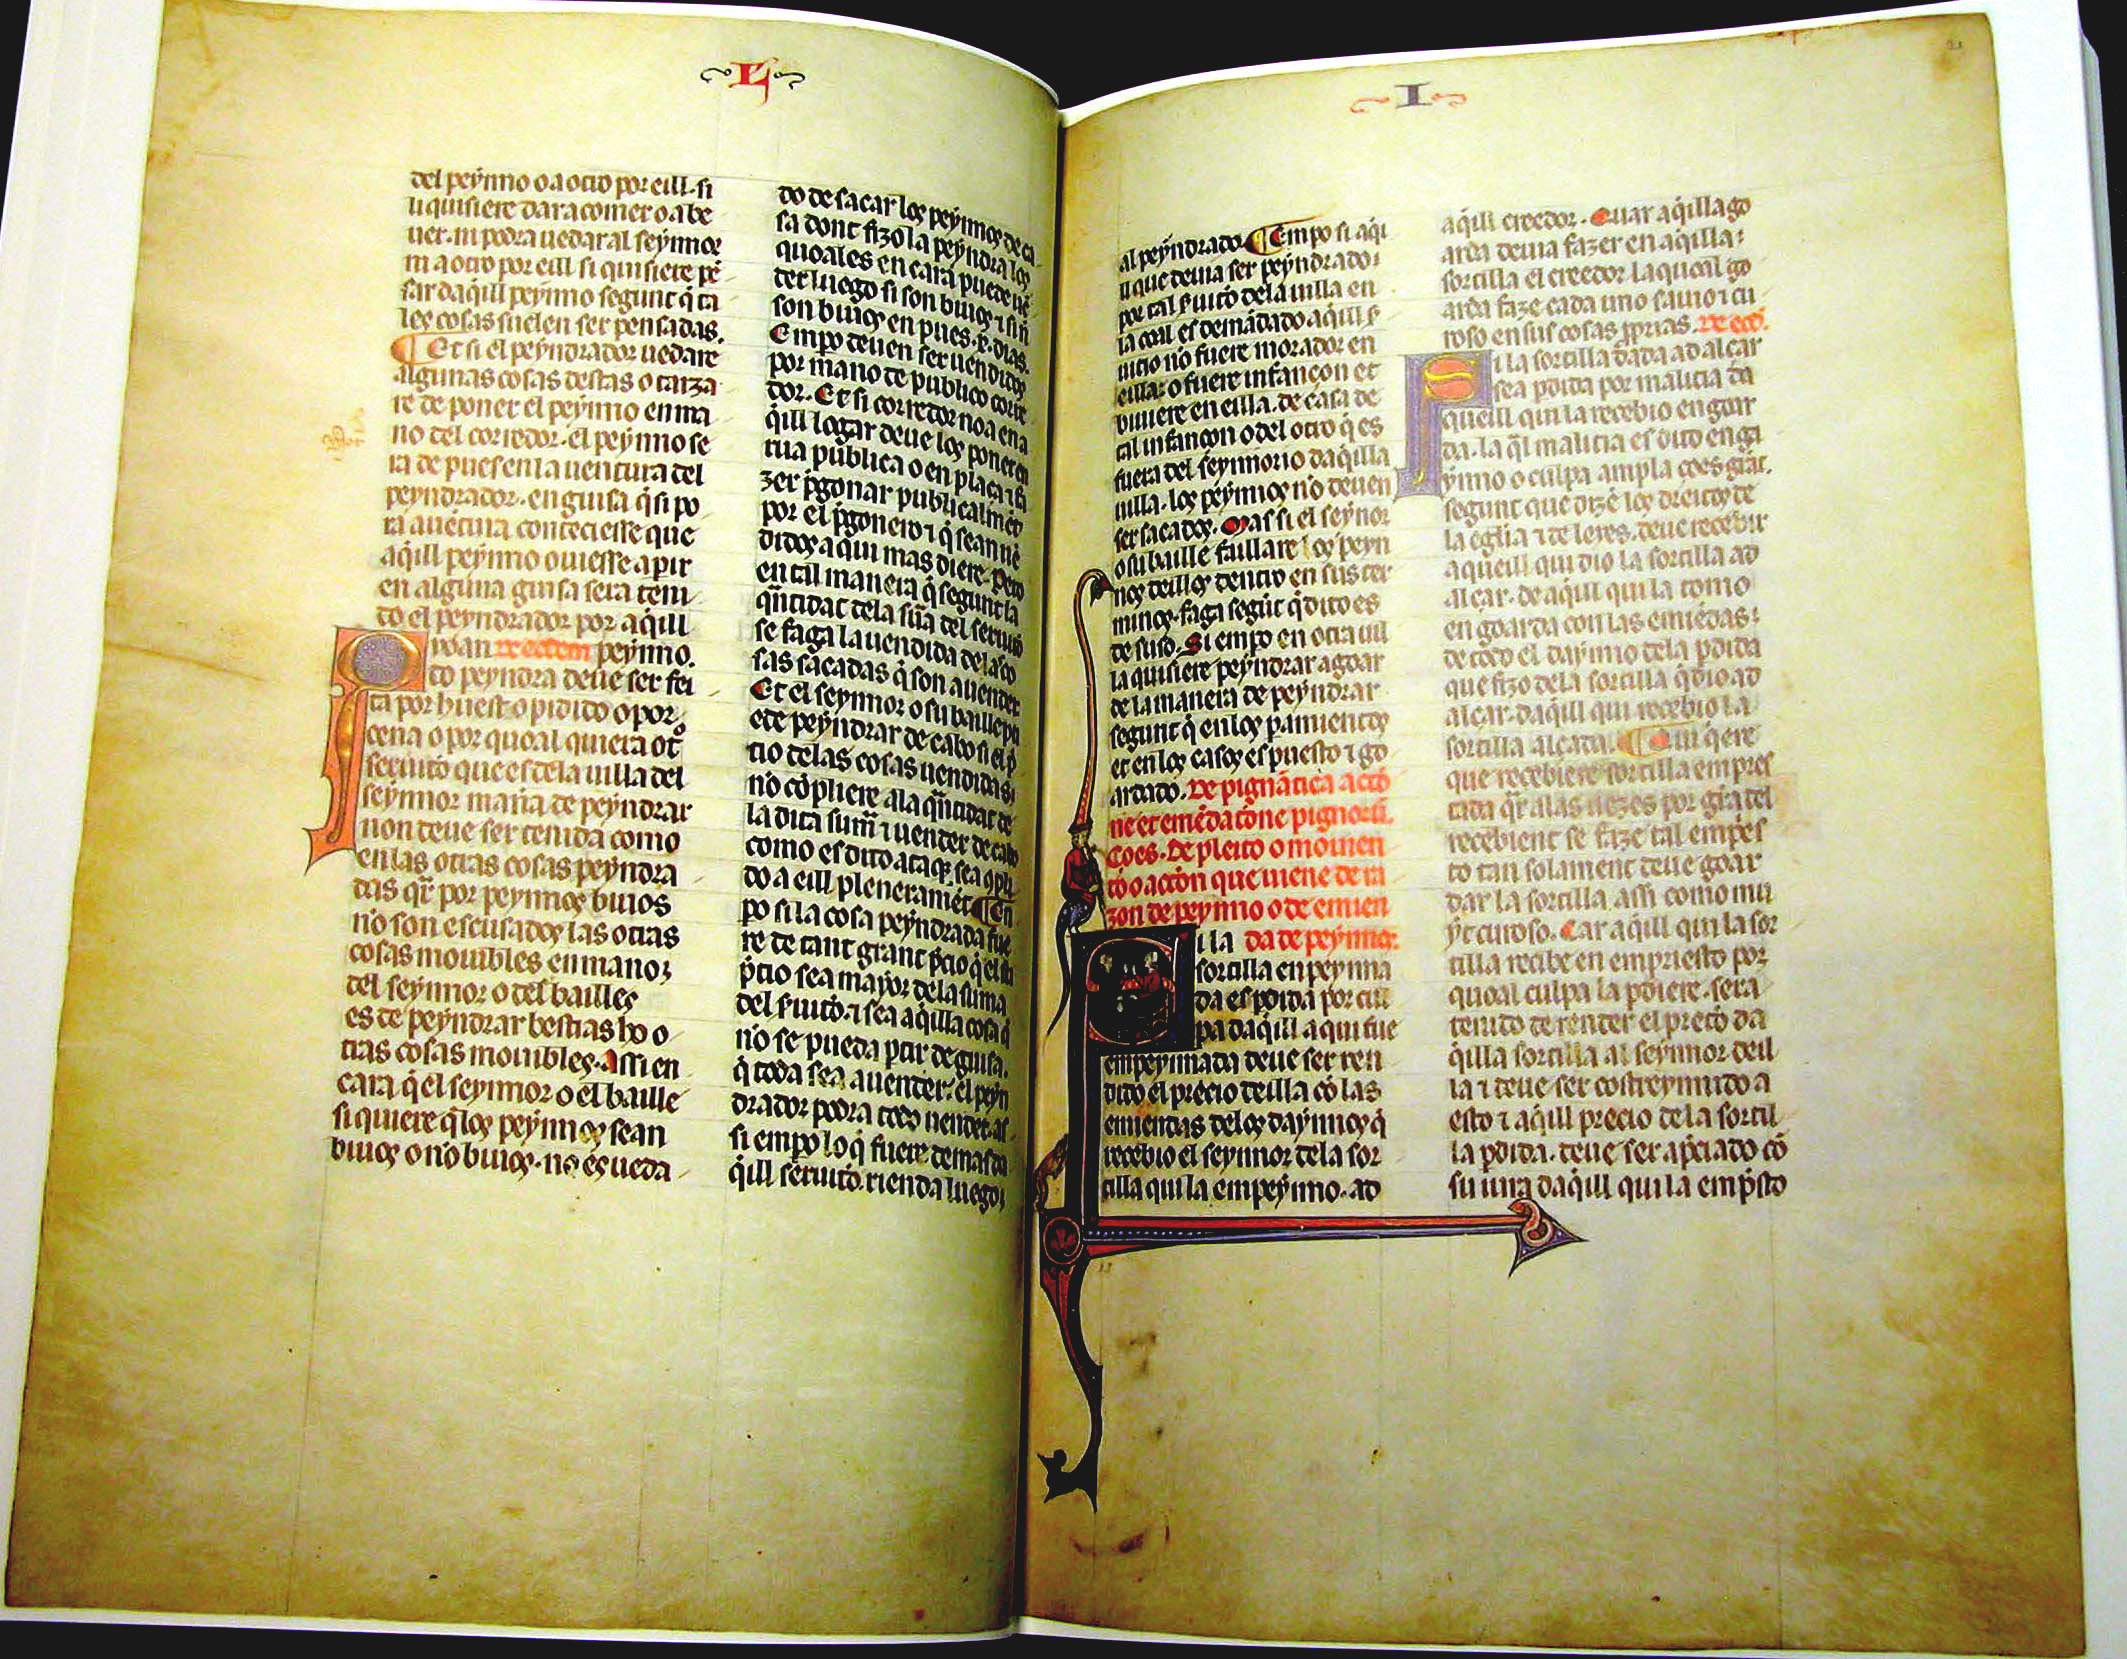 L
del peynno o a otro por eill. si
li quisiere dar a comer o a be
uer. ni podra uedar al seynnor
ni a otro por eill si quisiere pē
sar daq̄ill peynno segunt q̄ ta
les cosas suelen ser pensadas.
¶ Et si el peyndrador uedare
algunas cosas destas o tarza
re de poner el peynno en ma
no del corredor. el peynno se
ra de pues en la uentura del
peyndrador. en guisa q̄ si po
ra auētura conteciesse que
aq̄ill peynno ouiesse a pir
en alguna guisa sera teni
do el peyndrador por aq̄ill
peynno.
to peyndra deue ser fei
ta por huest o pidido o por
cena o por quoal quiera ot̄
seruitō que es dela uilla del
seynnor maña de peyndrar
non deue ser tenida como
en las otras cosas peyndra
das q̄r por peynnos biuos
nō son escusados las otras
cosas mouibles en manos
del seynnor o del bailles
es de peyndrar bestias bo o
tras cosas mouibles. Assi en
cara q̄ el seynnor o el baille
si quiere q̄ los peynnos sean
biuos o nō biuos. no es ueda
do de sacar los peynnos de ca
sa dont fizo la peyndra los
quoales en cara puede uē
der luego si son biuos ⁊ si ñ
son biuos en pues .x. dias.
Empo deuen ser uendidos
por mano de publico corre
dor. Et si corredor no a en a
q̄ill logar deue los poner en
rua publica o en placa ⁊ fa
zer p̄gonar publicalmēt
por el p̄gonero ⁊ q̄ sean uē
didos a qui mas diere. Pero
en tal manera q̄ segunt la
q̄ntidat dela sūa del seruitō
se faga la uendida delas co
sas sacadas q̄ son a uender
Et el seynnor o su baille pu
ede peyndrar de cabo si el p̄
tio delas cosas uendidas
nō cōpliere a la q̄ntidat de
la dita sum̄ ⁊ uender de cabo
como es dito ata q̄ sea cōpli
do a eill plenerament ¶ En
po si la cosa peyndrada fue
re de tant grant p̄cio q̄ el su
p̄cio sea mayor dela suma
del s̄uitō. ⁊ sea aq̄illa cosa q̄
nō se pueda p̄tir de guisa.
q̄ toda sea a uender. el peyn
drador podra todo uender. as
si empo lo q̄ fuere demas da
q̄ill seruitō. rienda luego
I
al peyndrado. ¶ Empo si aq̄i
ll que deuia ser peyndrado
por tal s̄uitō dela uilla en
la coal es demādado aq̄ill s̄
uitio nō fuere morador en
eilla. o fuere infançon et
biuiere en eilla. de casa de
tal infançon o del otro q̄ es
fuera del seynnorio daq̄illa
uilla. los peynnos nō deuen
ser sacados. Mas si el seynor
o su baille faillare los peyn
nos deillos dentro en sus ter
minos. faga segūt q̄ dito es
de suso. Si empo en otra uil
la quisiere peyndrar a goar
de la manera de peyndrar
segunt q̄ en los paramientos
et en los casos es puesto ⁊ go
ardado. De pignātica actō
ne et emēdatōne pignorū.
Coes. De pleito o mouien
tō o actōn que uiene de ra
zon de peynno o de emien
i la da de peynnos.
sortilla en peynna
da es p̄dida por cul
pa daq̄ill a qui fue
empeynnada deue ser ren
dido el precio deilla cō las
emiendas delos daynnos q̄
recebio el seynnor dela sor
tilla qui la empeynno. ad
aq̄ill creedor. Quar aq̄illa go
arda deuia fazer en aq̄illa
sortilla el creedor. la quoal go
arda faze cada uno sauio ⁊ cu
roso en sus cosas p̄prias. De eod.
i la sortilla dada ad alçar
sea p̄dida por malicia da
queill qui la recebio en goar
da. la q̄l malicia es dito enga
ynno o culpa ampla coes grāt.
segunt que dizē los dreitos de
la eglia ⁊ de leyes. deue recebir
aqueill qui dio la sortilla ad
alçar. de aq̄ill qui la tomo
en goarda con las emiēdas
de todo el daynno dela p̄dida
que fizo dela sortilla q̄ dio ad
alçar. daq̄ill qui recebio la
sortilla alçada. ¶ Qui quere
que recebiere sortilla empres
tada q̄r a las uezes por grā del
recebient se faze tal empes
to tan solament deue goar
dar la sortilla assi como mu
yt curoso. Car aq̄ill qui la sor
tilla recibe en empriesto por
quoal culpa la p̄diere. sera
tenido de render el precio da
q̄illa sortilla al seynnor deil
la ⁊ deue ser costreynnido a
esto ⁊ aq̄ill precio dela sortil
la p̄dida. deue ser ap̄ciado cō
su iura daq̄ill qui la emp̄sto